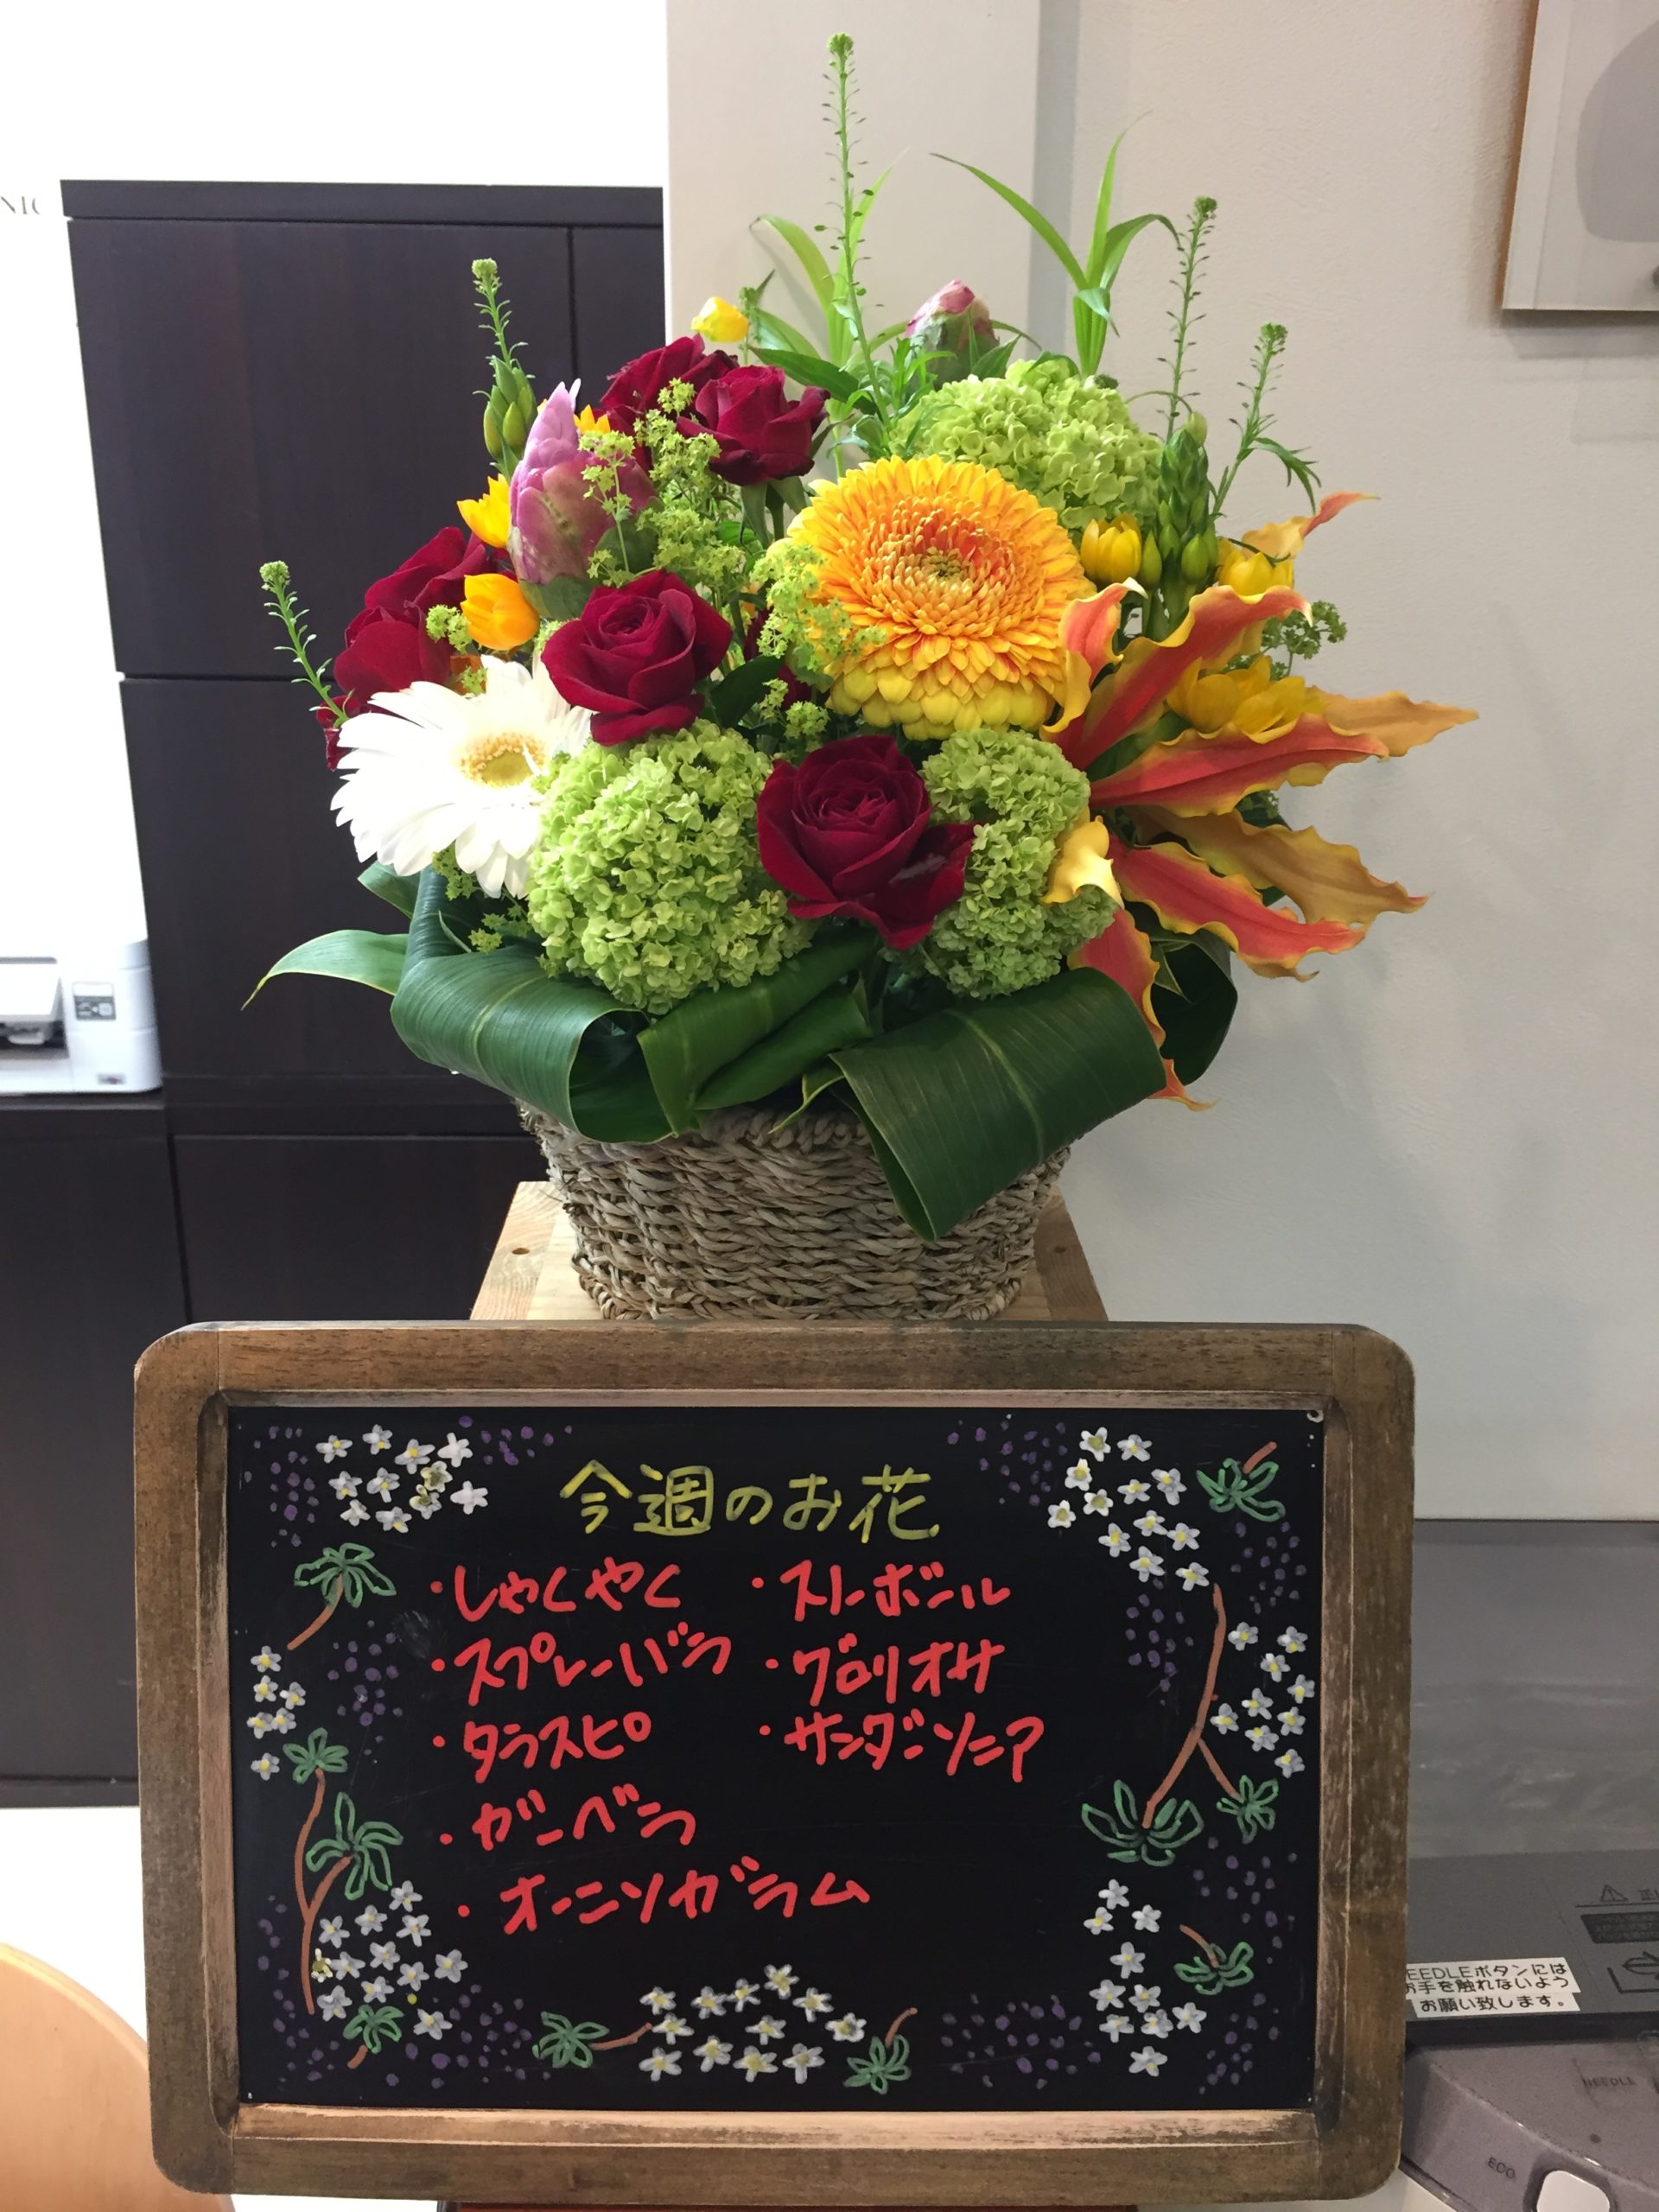 今週のお花
・しゃくやく
・スプレーバラ
・タラスピ
・ガーベラ
・オーニソガラム
・スノーボール
・グロリオサ
・サンダーソニア
NEEDLEボタンには
お手を触れないよう
お願い致します。
NEEDLE
ECO